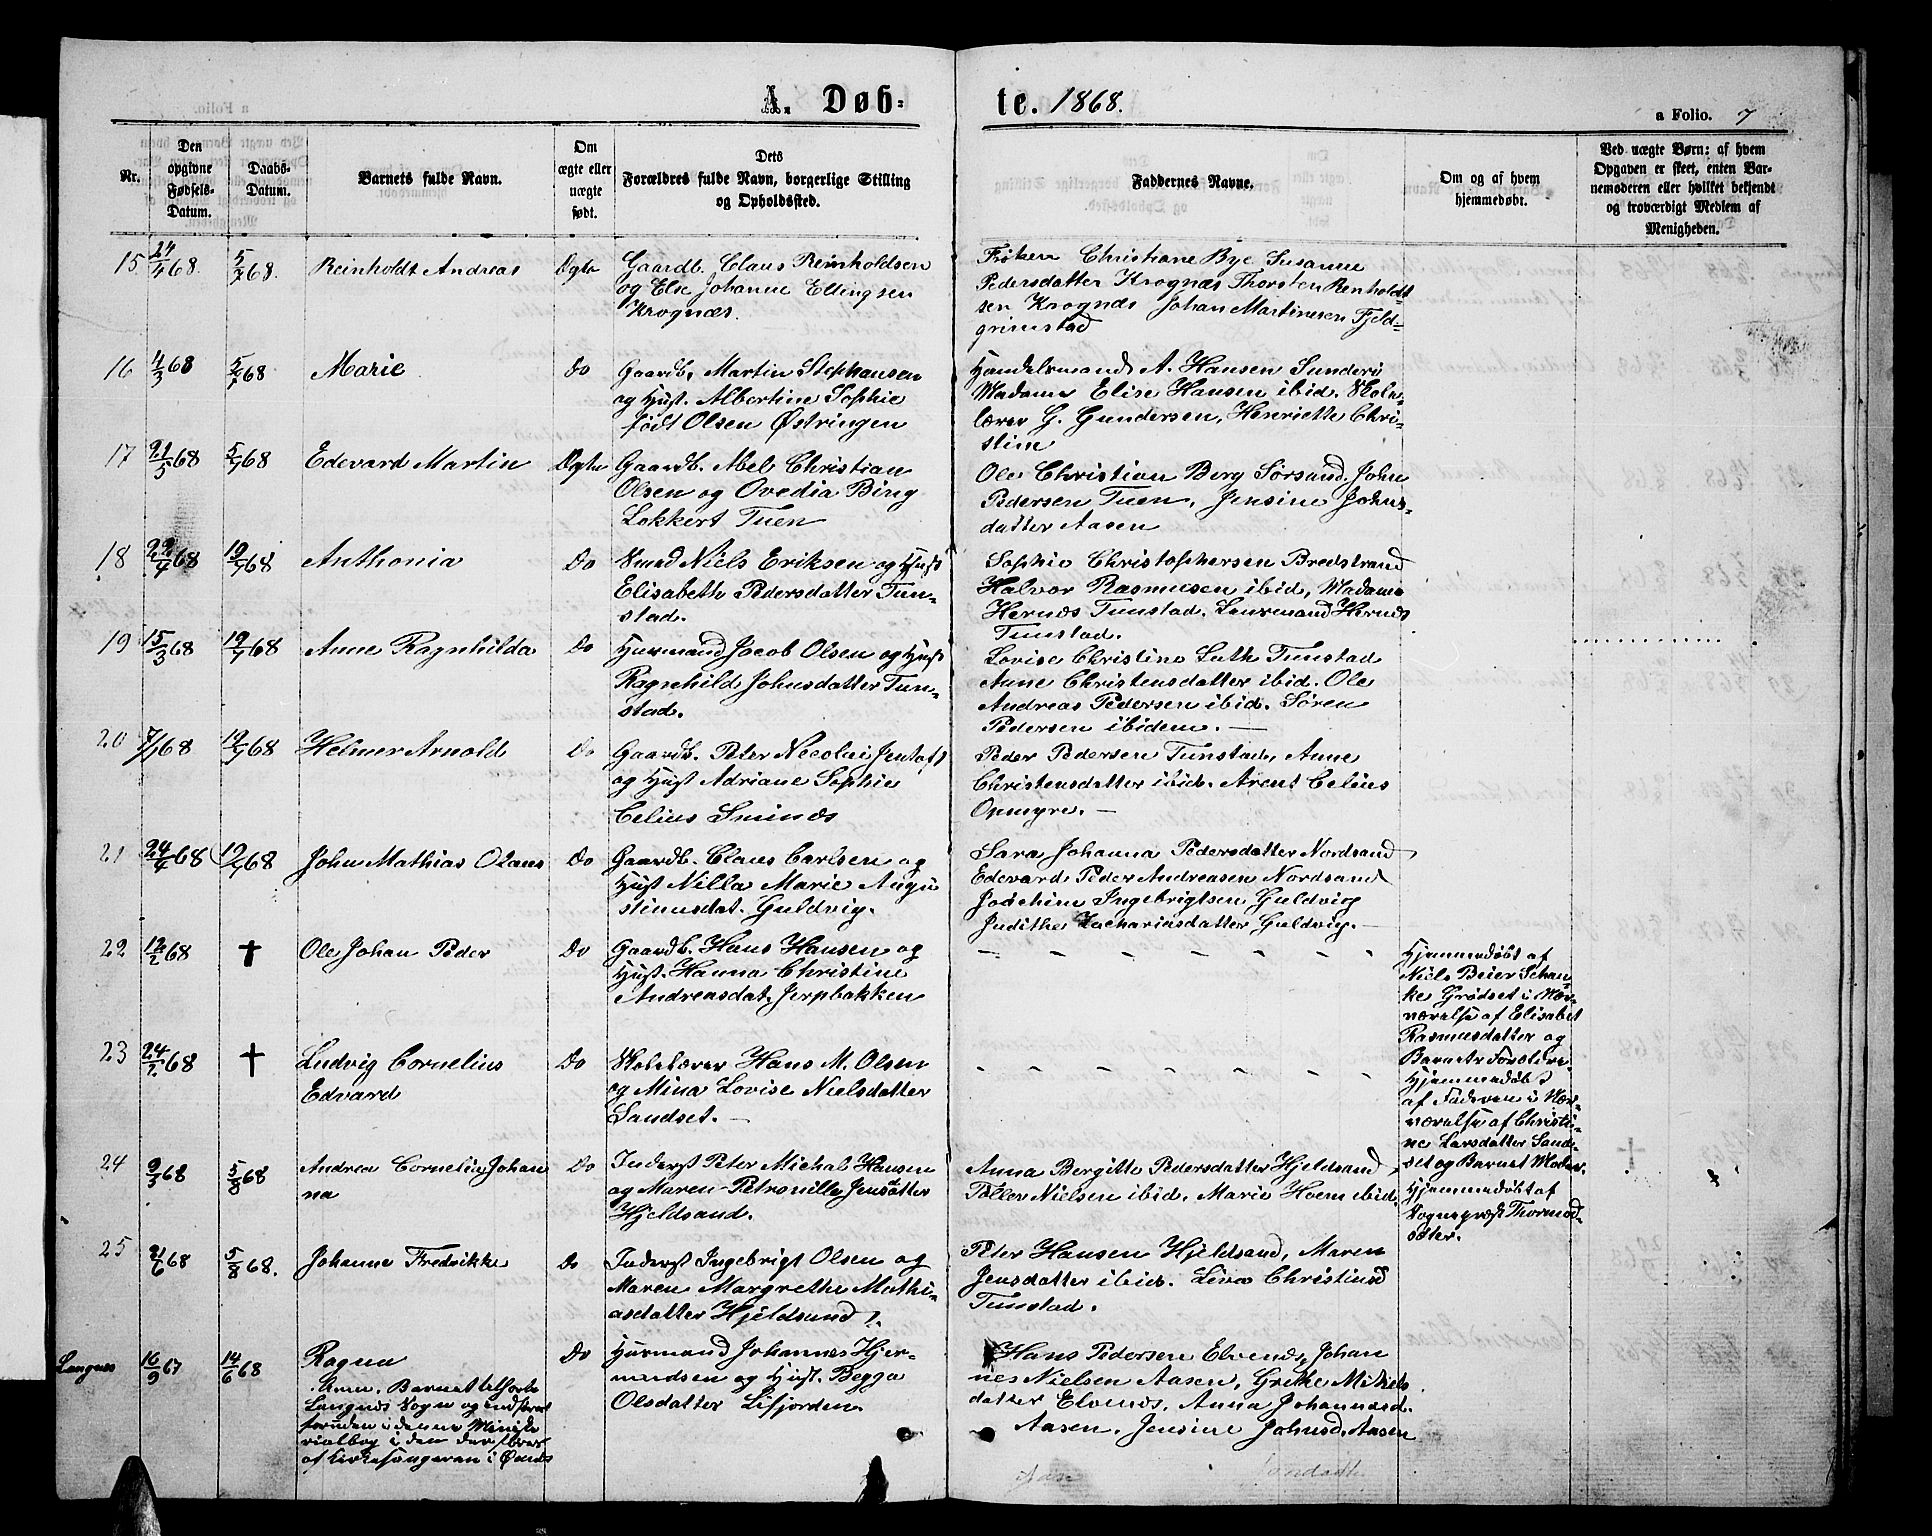 A. Døb-
te. 1868.
a Folio. 7
Nr.
Den
opgivne
Fødsels-
Datum.
Daabs-
Datum.
Barnets fulde Navn.
Om
ægte eller
uægte
født.
Dets
Forældres fulde Navn, borgerlige Stilling
og Opholdssted.
Faddernes Navne.
Om og af hvem
hjemmedøbt.
Ved uægte Børn: af hvem
Opgaven er skeet, enten Bar-
nemoderen eller hvilket bekjendt
og troværdigt Medlem af
Menigheden.
15 24/4 68. 5/7 68. Reinholdt Andreas Ægte
Gaardb. Claus Reinholdsen
og Else Johanne Ellingsen
Krognæs.
Frøken Christiane Bye Susanne
Pedersdatter Krognæs Thorsten Renholdt-
sen Krognæs Johan Martinusen Fjeld-
grimstad
16 4/3 68 5/7 68 Marie Do
Gaardb. Martin Stephansen
og Hust. Albertine Sophie
født Olsen Østringen
Handelsmand A. Hansen Sunderö
Madame Elise Hansen ibid. Skole-
lærer G. Gundersen, Henriette Chri-
stine
17 21/5 68 5/7 68 Edevard Martin Ægte
Gaardb. Abel Christian
Olsen og Ovedia Bing
Lokkert Tuen
Ole Christian Berg Sørsand, John
Pedersen Tuen, Jensine Johns-
datter Aasen
18 22/4 68 19/7 68 Anthonia Do
Smed Niels Eriksen og Hust
Elisabeth Pedersdatter Tun-
stad.
Sophie Christophersen Bredstrand
Halvor Rasmusen ibid, Madame
Hernæs Tunstad. Lensmand Hernæs
Tunstad.
19 15/3 68 19/7 68 Anne Ragnhilda Do
Husmand Jacob Olsen og Hust
Ragnhild Johnsdatter Tun-
stad.
Lovise Christine Luth Tunstad
Anne Christensdatter ibid. Ole
Andreas Pedersen ibid. Søren
Pedersen ibidem. —
20 7/1 68 19/7 68 Helmer Arnold Do
Gaardb. Peter Nicolai Jentoft
og Hust Adriane Sophie
Celius Sminæs
Peder Pedersen Tunstad, Anne
Christensdatter ibid. Arent Celius
Opmyre. —
21 24/4 68 19/7 68 John Mathias Olaus Do
Gaardb. Claus Carlsen og
Hust Nilla Marie Augu
stinusdat. Guldvig.
Sara Johanna Pedersdatter Nordsand
Edevard Peder Andreasen Nordsand
Joachim Ingebrigtsen Guldvig
Judithe Zachariasdatter Guldvig. —
22 12/2 68 † Ole Johan Peder Do
Gaardb. Hans Hansen og
Hust. Hanna Christine
Andreasdat. Jerpbakken
Hjemmedøbt af
Niels Beier Schan-
ke Grødset i Nær-
værelse af Elisabet
Rasmusdatter og
Barnets Forældre.
23 24/7 68 † Ludvig Cornelius
Edvard Do
Skolelærer Hans M. Olsen
og Mina Lovise Nielsdatter
Sandset. —
Hjemmedøbt
af Faderen i Nær-
værelse af Christi-
ne Larsdatter Sand-
set og Barnets Moder.
24 9/3 68 5/8 68 Andrea Cornelia Johan
na Do
Inderst Peter Michal Hansen
og Maren Petronille Jensdatter
Hjeldsand.
Anna Bergitte Pedersdatter Hjeldsand,
Toller Nielsen ibid. Marie Hoem ibid.
Hjemmedøbt af
Sognepræst Thormod-
sæter.
25 21/6 68 5/8 68. Johanne Fredrikke Do
Inderst Ingebrigt Olsen og
Maren Margrethe Mathi-
asdatter Hjeldsand.
Peter Hansen Hjeldsand, Maren
Jensdatter ibid. Lina Christiansd
Tunstad.
Langnes 16/9 67 14/6 68 Ragna Do
Anm. Barnet tilhører
Langnæs Sogn og
foruden i denne Ministe
rialbog i den der føres
af Kirkesangeren i Øxnæs
Husmand Johannes Hjer-
mundsen og Hust. Begga
Olsdatter Lifjorden.
Hans Pedersen Elvenæs, Johan
nes Nielsen Aasen, Grethe Mikels
datter Elvenæs, Anna Johannesd.
Aasen, Jensine Johnsd. Aasen